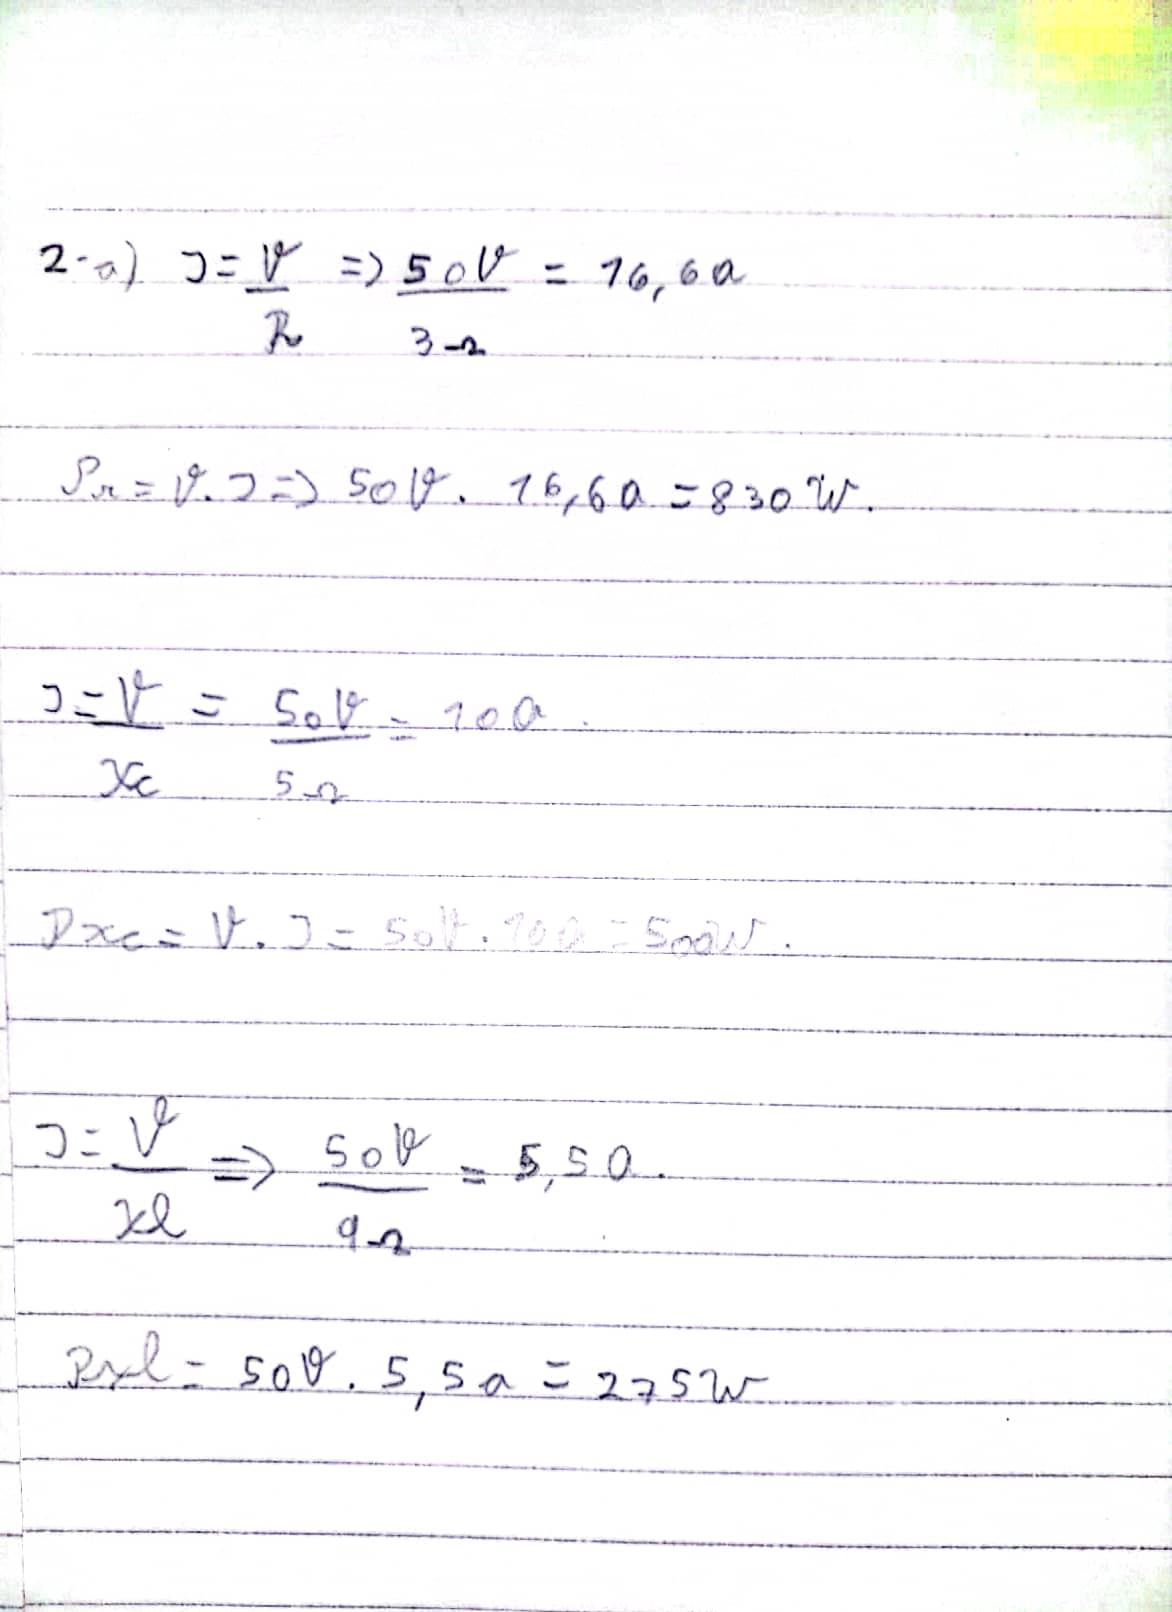 2-a) I = V/R => 50V/3Ω = 16,6a
Pr = V.I => 50V. 16,6a = 830W.
I = V/Xc = 50V/5Ω = 10a.
Pxc = V.I = 50V.10a = 500W.
I = V/xl => 50V/9Ω = 5,5a.
Pxl = 50V. 5,5a = 275W